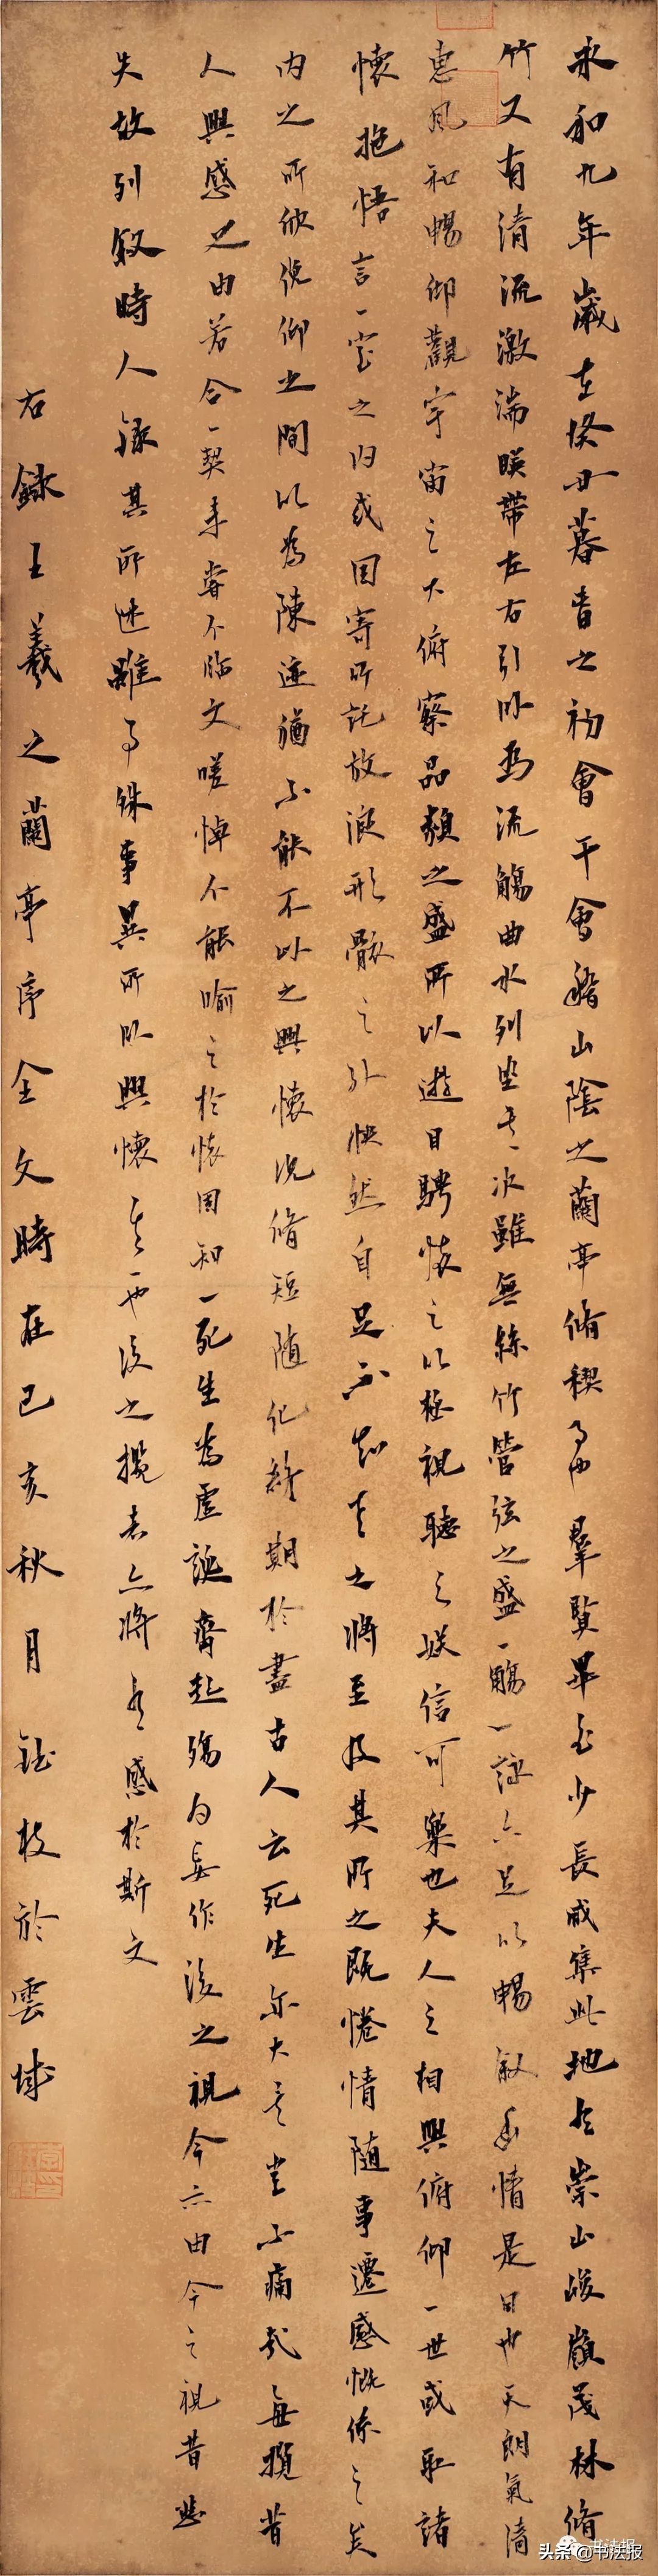 永和九年歲在癸丑暮春之初會于會稽山陰之蘭亭脩稧事也羣賢畢至少長咸集此地有崇山峻嶺茂林脩
竹又有清流激湍暎帶左右引以為流觴曲水列坐其次雖無絲竹管弦之盛一觴一詠亦足以暢敘幽情是日也天朗氣清
惠風和暢仰觀宇宙之大俯察品類之盛所以遊目騁懷足以極視聽之娛信可樂也夫人之相與俯仰一世或取諸
懷抱悟言一室之內或因寄所託放浪形骸之外快然自足不知老之將至及其所之既惓情隨事遷感慨係之矣
內之所欣俛仰之間以為陳迹猶不能不以之興懷況脩短隨化終期於盡古人云死生亦大矣豈不痛哉每攬昔
人興感之由若合一契未嘗不臨文嗟悼不能喻之於懷固知一死生為虛誕齊彭殤為妄作後之視今亦由今之視昔悲
夫故列敘時人錄其所述雖世殊事異所以興懷其一也後之攬者亦將有感於斯文
右錄王羲之蘭亭序全文時在己亥秋月鈺枝於雲城
书法报
头条 @书法报